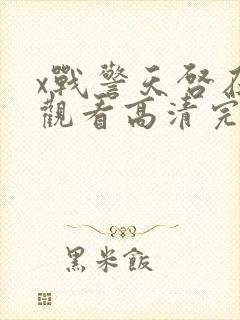 x戰警天啓在
觀看高清完
黑米飯